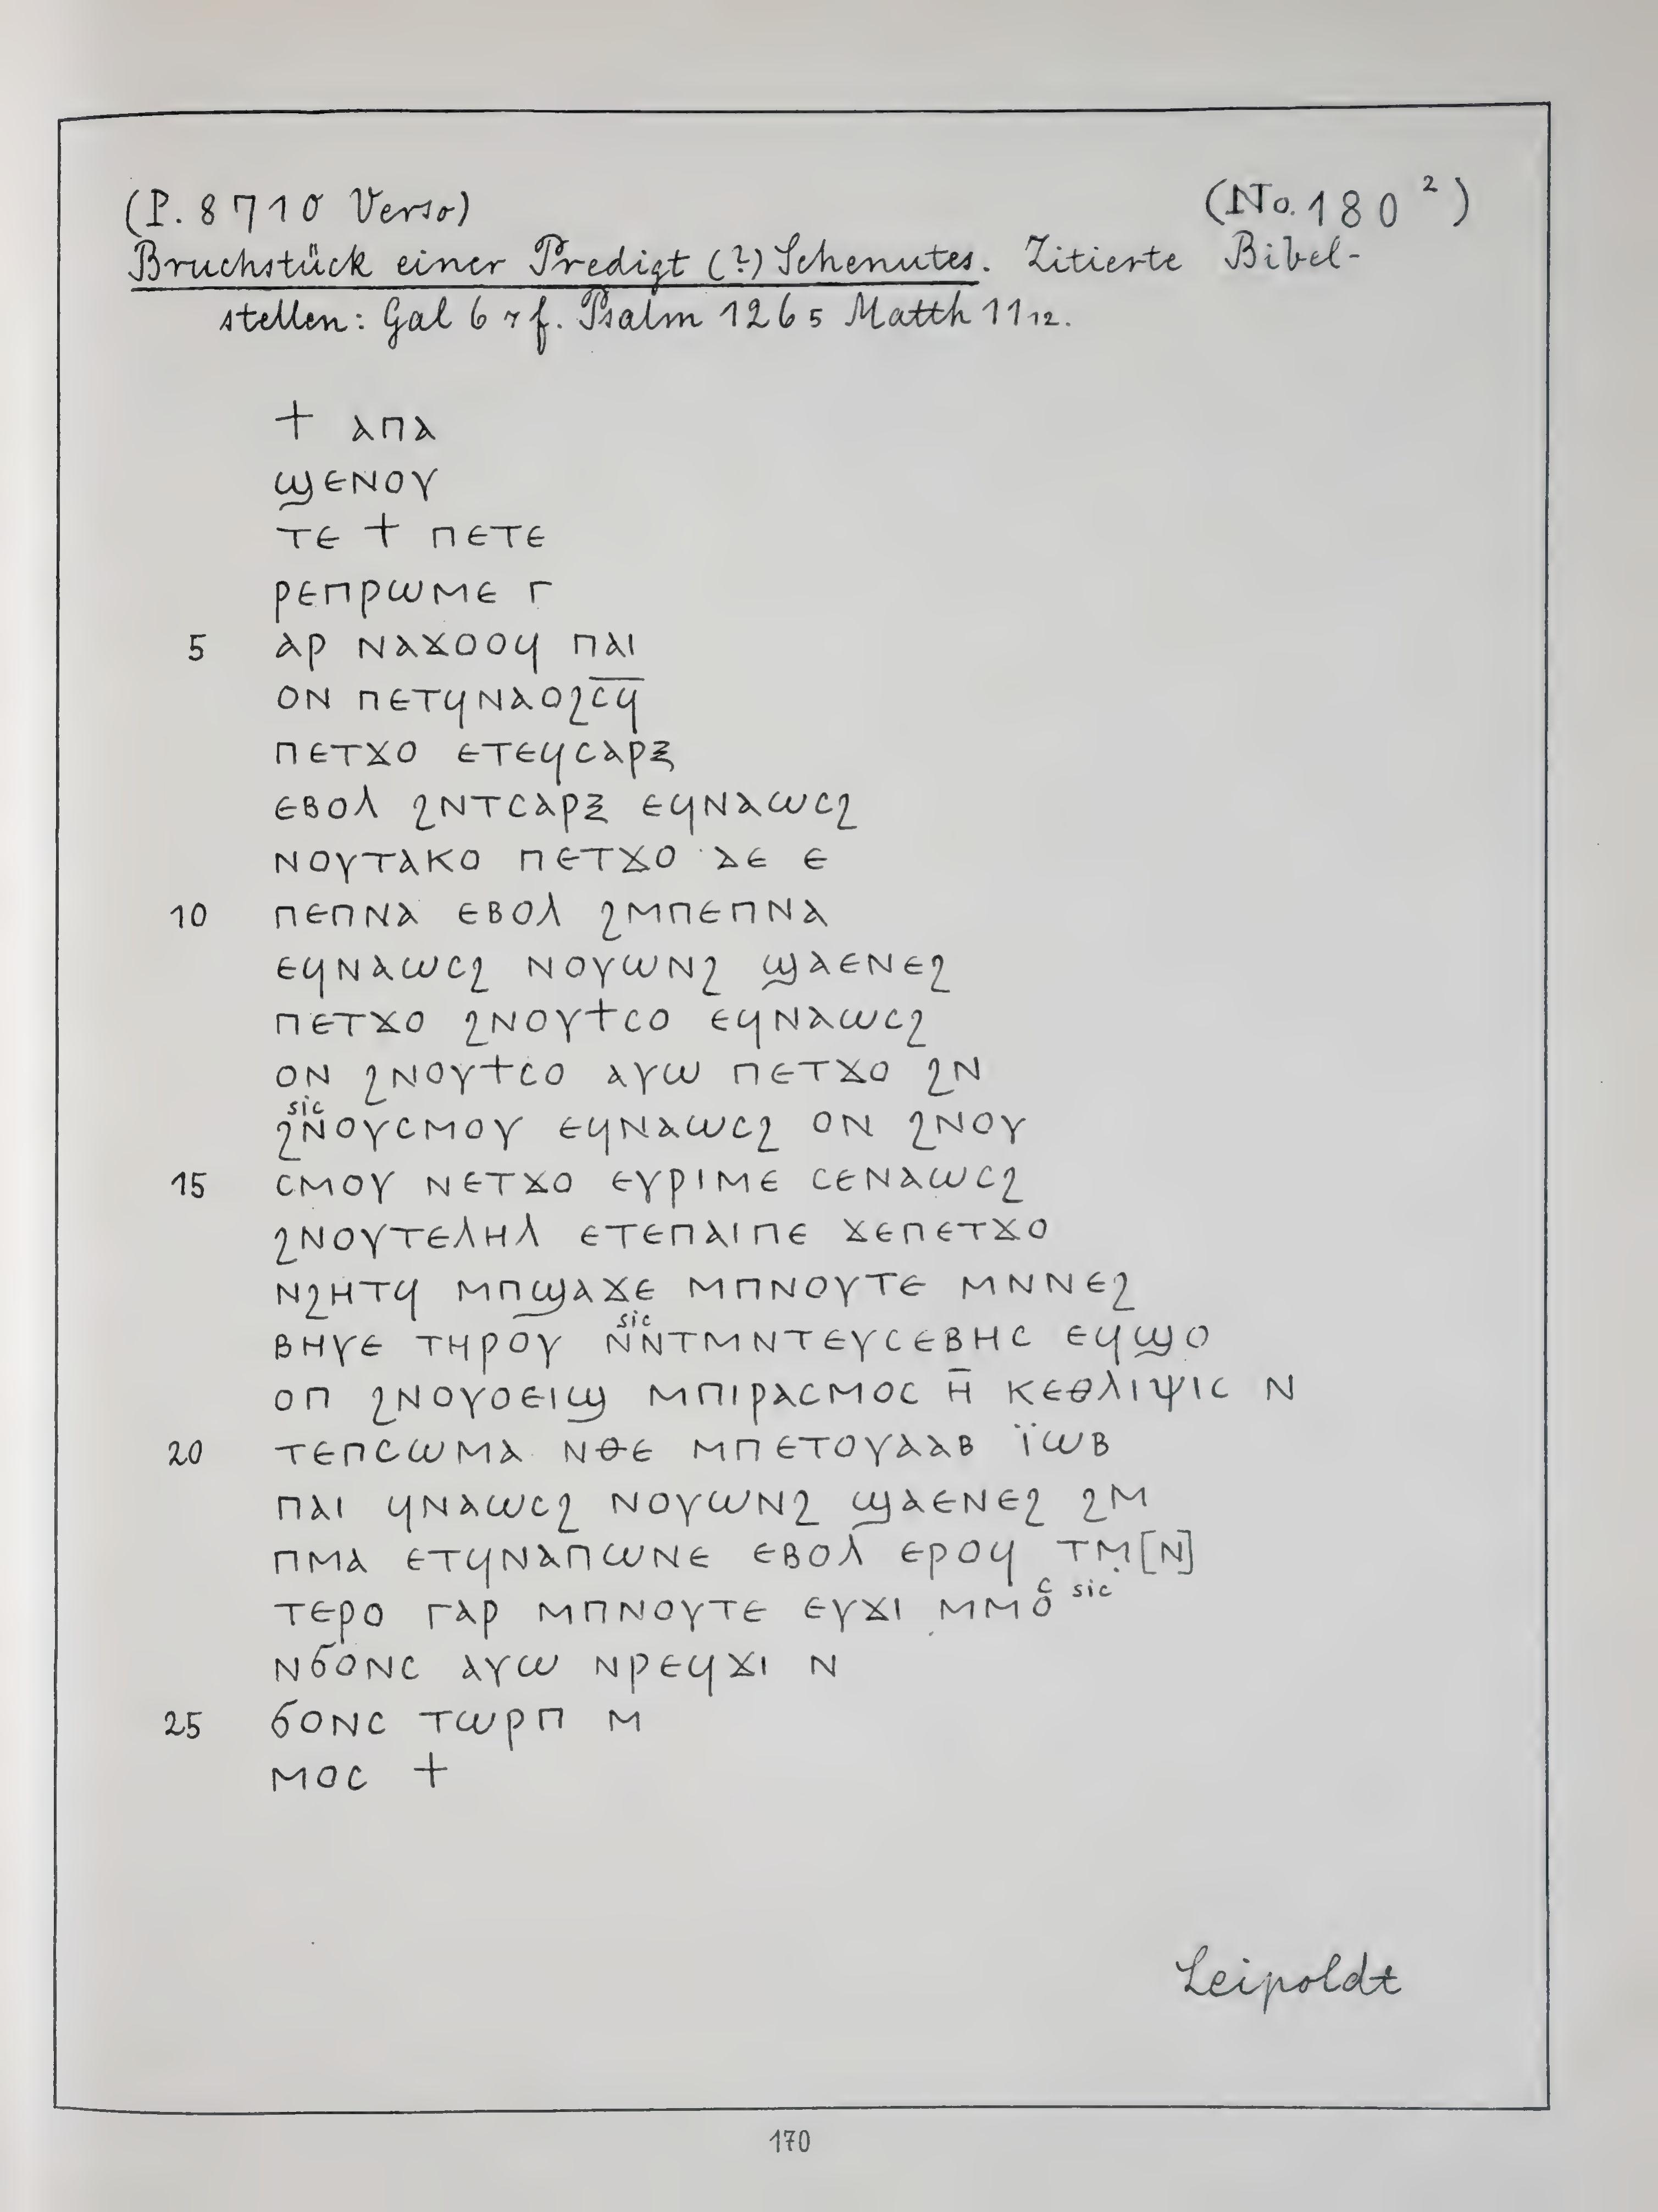 (P. 8710 Verso) (No. 180²)
Bruchstück einer Predigt (?) Schenutes. Zitierte Bibel-
stellen: Gal 6 7 f. Psalm 126 5 Matth 11 12.
+ ⲁⲡⲁ
ϣⲉⲛⲟⲩ
ⲧⲉ + ⲡⲉⲧⲉ
ⲣⲉⲡⲣⲱⲙⲉ ⲅ
5 ⲁⲣ ⲛⲁϫⲟⲟϥ ⲡⲁⲓ
ⲟⲛ ⲡⲉⲧϥⲛⲁⲟϩ̅ⲥ̅ϥ̅
ⲡⲉⲧϫⲟ ⲉⲧⲉϥⲥⲁⲣⲝ
ⲉⲃⲟⲗ ϩⲛⲧⲥⲁⲣⲝ ⲉϥⲛⲁⲱⲥϩ
ⲛⲟⲩⲧⲁⲕⲟ ⲡⲉⲧϫⲟ ⲇⲉ ⲉ
10 ⲡⲉⲡⲛⲁ ⲉⲃⲟⲗ ϩⲙⲡⲉⲡⲛⲁ
ⲉϥⲛⲁⲱⲥϩ ⲛⲟⲩⲱⲛϩ ϣⲁⲉⲛⲉϩ
ⲡⲉⲧϫⲟ ϩⲛⲟⲩϯⲥⲟ ⲉϥⲛⲁⲱⲥϩ
ⲟⲛ ϩⲛⲟⲩϯⲥⲟ ⲁⲩⲱ ⲡⲉⲧϫⲟ ϩⲛ
sic
ϩⲛⲟⲩⲥⲙⲟⲩ ⲉϥⲛⲁⲱⲥϩ ⲟⲛ ϩⲛⲟⲩ
15 ⲥⲙⲟⲩ ⲛⲉⲧϫⲟ ⲉⲩⲣⲓⲙⲉ ⲥⲉⲛⲁⲱⲥϩ
ϩⲛⲟⲩⲧⲉⲗⲏⲗ ⲉⲧⲉⲡⲁⲓⲡⲉ ϫⲉⲡⲉⲧϫⲟ
ⲛϩⲏⲧϥ ⲙⲡϣⲁϫⲉ ⲙⲡⲛⲟⲩⲧⲉ ⲙⲛⲛⲉϩ
sic
ⲃⲏⲩⲉ ⲧⲏⲣⲟⲩ ⲛⲛⲧⲙⲛⲧⲉⲩⲥⲉⲃⲏⲥ ⲉϥϣⲟ
ⲟⲡ ϩⲛⲟⲩⲟⲉⲓϣ ⲙⲡⲓⲣⲁⲥⲙⲟⲥ ⲏ̅ ⲕⲉⲑⲗⲓⲯⲓⲥ ⲛ
20 ⲧⲉⲡⲥⲱⲙⲁ ⲛⲑⲉ ⲙⲡⲉⲧⲟⲩⲁⲁⲃ ⲓ̈ⲱⲃ
ⲡⲁⲓ ϥⲛⲁⲱⲥϩ ⲛⲟⲩⲱⲛϩ ϣⲁⲉⲛⲉϩ ϩⲙ
ⲡⲙⲁ ⲉⲧϥⲛⲁⲡⲱⲛⲉ ⲉⲃⲟⲗ ⲉⲣⲟϥ ⲧⲙ̣[ⲛ]
ⲧⲉⲣⲟ ⲅⲁⲣ ⲙⲡⲛⲟⲩⲧⲉ ⲉⲩϫⲓ ⲙⲙⲟⲥ sic
ⲛϭⲟⲛⲥ ⲁⲩⲱ ⲛⲣⲉϥϫⲓ ⲛ
25 ϭⲟⲛⲥ ⲧⲱⲣⲡ ⲙ
ⲙⲟⲥ +
Leipoldt
170